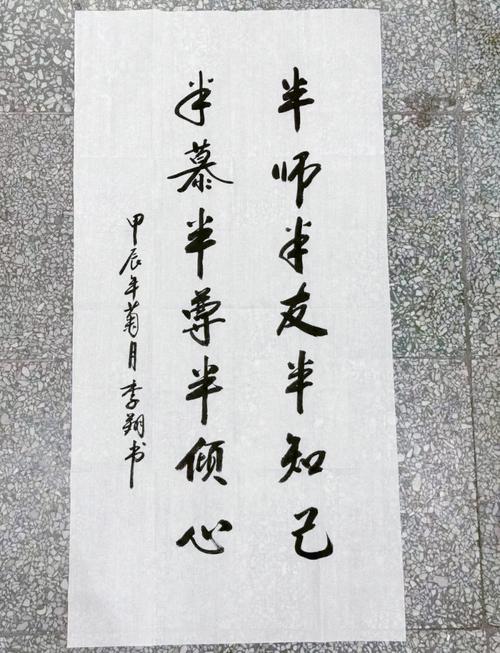 半师半友半知己
半慕半尊半倾心
甲辰年菊月李翔书